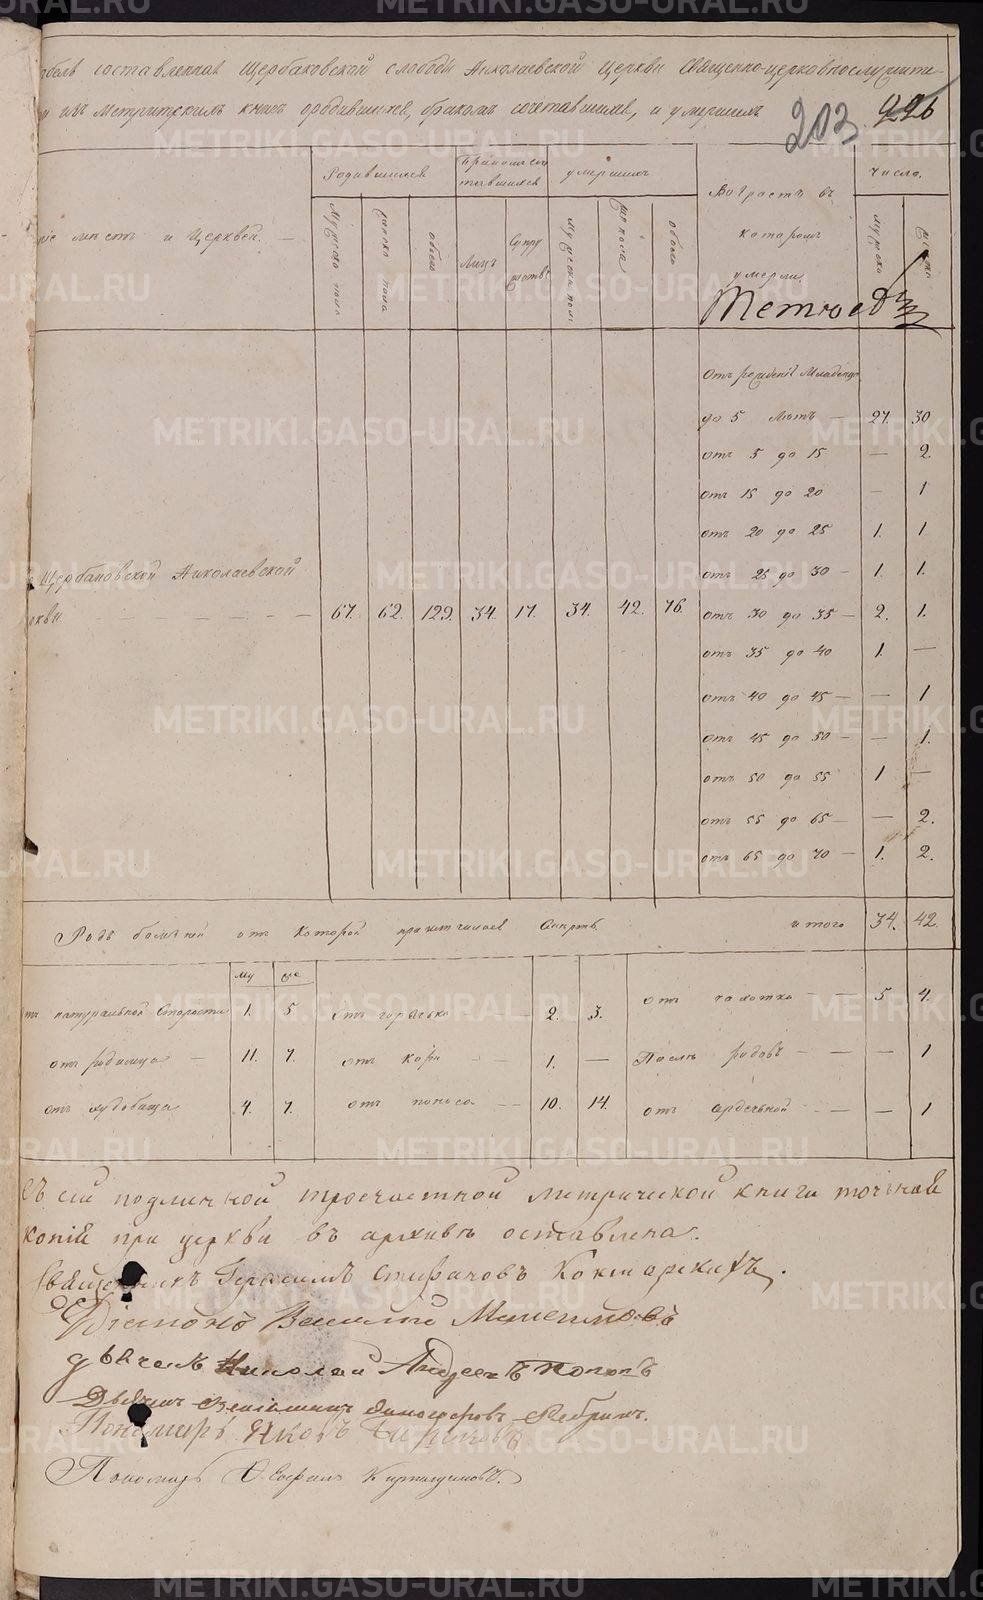 составленная Щербаковской слободы Николаевской Церкви Священно-церковнослужите
изъ метрическихъ книгъ о родившихся, бракомъ сочетавшихся, и умершихъ
203. 226
Родившихся
Бракомъ соче
тавшихся
умершихъ
Возрастъ въ
которомъ
умерли
число.
мѣстъ и Церквей. —
Мужеска пола
женска пола
обоего
Лицъ
Супру
жествъ
мужеска пола
женска
обоего
мужеска
женска
Отъ рожденія Младенцевъ
до 5 лѣтъ — 27. 30
отъ 5 до 15 — 2.
отъ 15 до 20 — 1
отъ 20 до 25 1. 1.
отъ 25 до 30 — 1. 1.
Щербаковской Николаевской
67. 62. 129. 34. 17. 34. 42. 76.
отъ 30 до 35 — 2. 1.
отъ 35 до 40 1. —
отъ 40 до 45 — — 1
отъ 45 до 50 — — 1.
отъ 50 до 55 1 —
отъ 55 до 65 — — 2.
отъ 65 до 70 — 1. 2.
Родъ болѣзни отъ которой приключилась Смерть.
итого 34. 42.
му же
натуральной Старости 1. 5
отъ горячки 2. 3.
отъ чахотки — — 5 4.
отъ родимца — 11. 7.
отъ кори — — 1. —
Послѣ родовъ — — — 1
отъ худобища 4. 7.
отъ поноса — 10. 14.
отъ — — — 1
Съ сей подлинной троечастной метрической книги точная
копія при церкви въ архивѣ оставлена.
Священникъ Герасимъ Стефановъ
Діаконъ Василій
дьячекъ Николай Андреевъ Поповъ
Дьячекъ
Пономарь Яковъ
Пономарь
METRIKI.GASO-URAL.RU